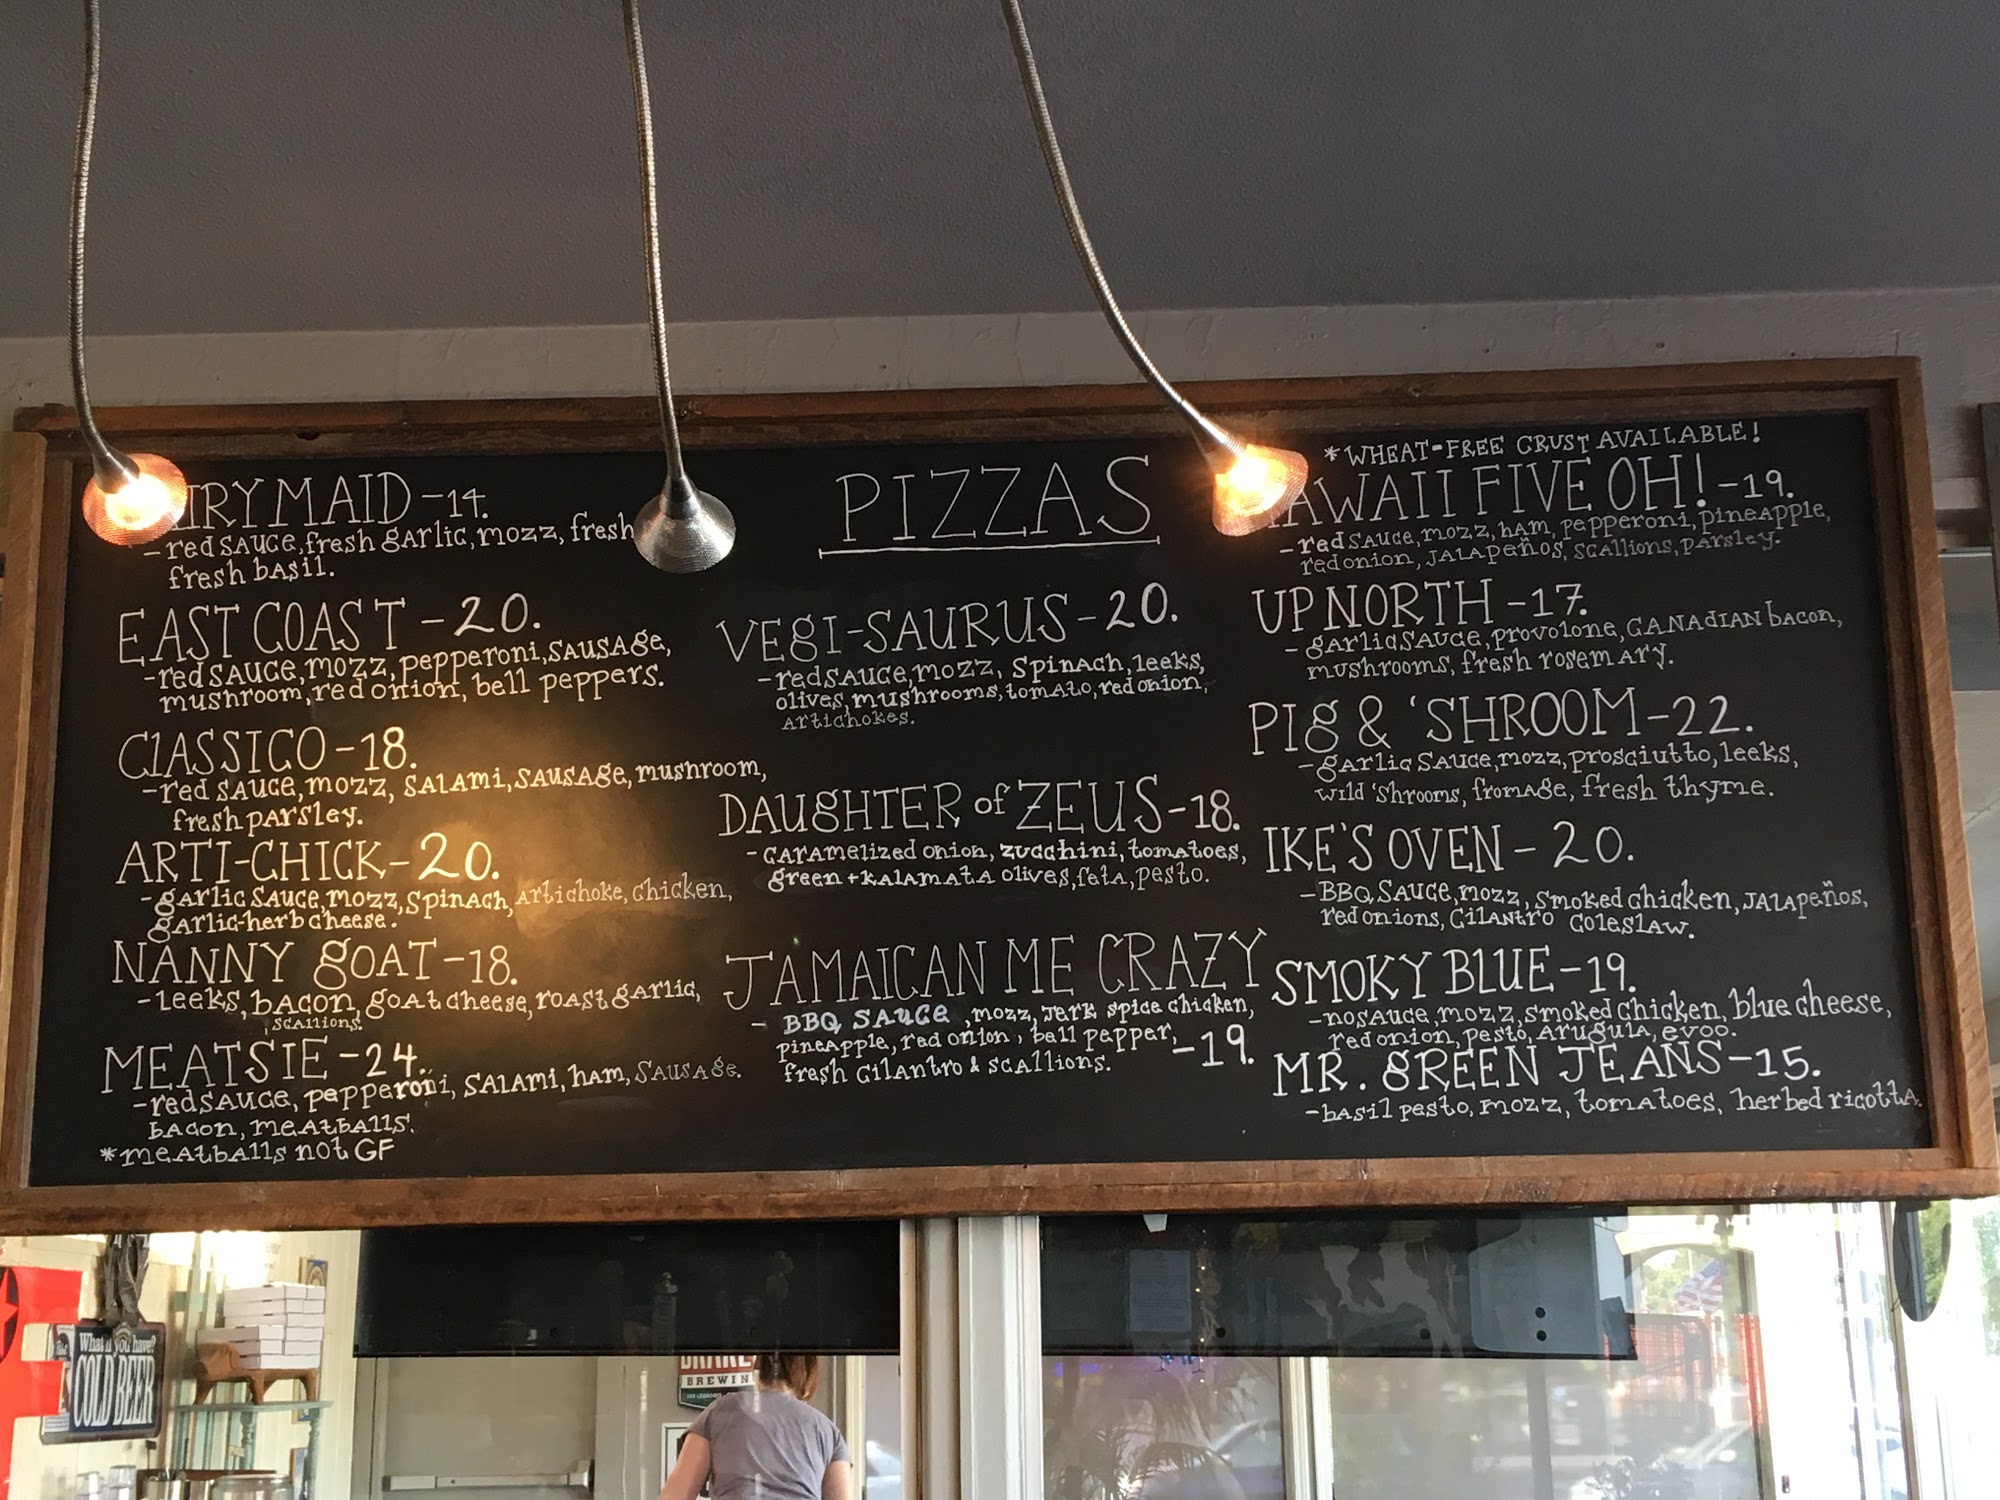 PIZZAS
MAID - 14.
- red sauce, fresh garlic, mozz, fresh
fresh basil.
EAST COAST - 20.
- red sauce, mozz, pepperoni, sausage,
mushroom, red onion, bell peppers.
CLASSICO - 18.
- red sauce, mozz, salami, sausage, mushroom,
fresh parsley.
ARTI-CHICK - 20.
- garlic sauce, mozz, spinach, artichoke, chicken,
garlic-herb cheese.
NANNY GOAT - 18.
- leeks, bacon, goat cheese, roast garlic,
, scallions.
MEATSIE - 24.
- red sauce, pepperoni, salami, ham, sausage.
bacon, meatballs.
*meatballs not GF
VEGI-SAURUS - 20.
- red sauce, mozz, spinach, leeks,
olives, mushrooms, tomato, red onion,
artichokes.
DAUGHTER of ZEUS - 18.
- caramelized onion, zucchini, tomatoes,
green + kalamata olives, feta, pesto.
JAMAICAN ME CRAZY
- BBQ SAUCE, mozz, jerk spice chicken,
pineapple, red onion, bell pepper,
fresh cilantro & scallions. - 19.
*WHEAT-FREE CRUST AVAILABLE!
HAWAII FIVE OH! - 19.
- red sauce, mozz, ham, pepperoni, pineapple,
red onion, jalapeños, scallions, parsley.
UP NORTH - 17.
- garlic sauce, provolone, CANADIAN bacon,
mushrooms, fresh rosemary.
PIG & 'SHROOM - 22.
- garlic sauce, mozz, prosciutto, leeks,
wild 'shrooms, fromage, fresh thyme.
IKE'S OVEN - 20.
- BBQ sauce, mozz, smoked chicken, jalapeños,
red onions, cilantro coleslaw.
SMOKY BLUE - 19.
- no sauce, mozz, smoked chicken, blue cheese,
red onion, pesto, arugula, evoo.
MR. GREEN JEANS - 15.
- basil pesto, mozz, tomatoes, herbed ricotta.
What'll you have?
COLD BEER
BREWIN